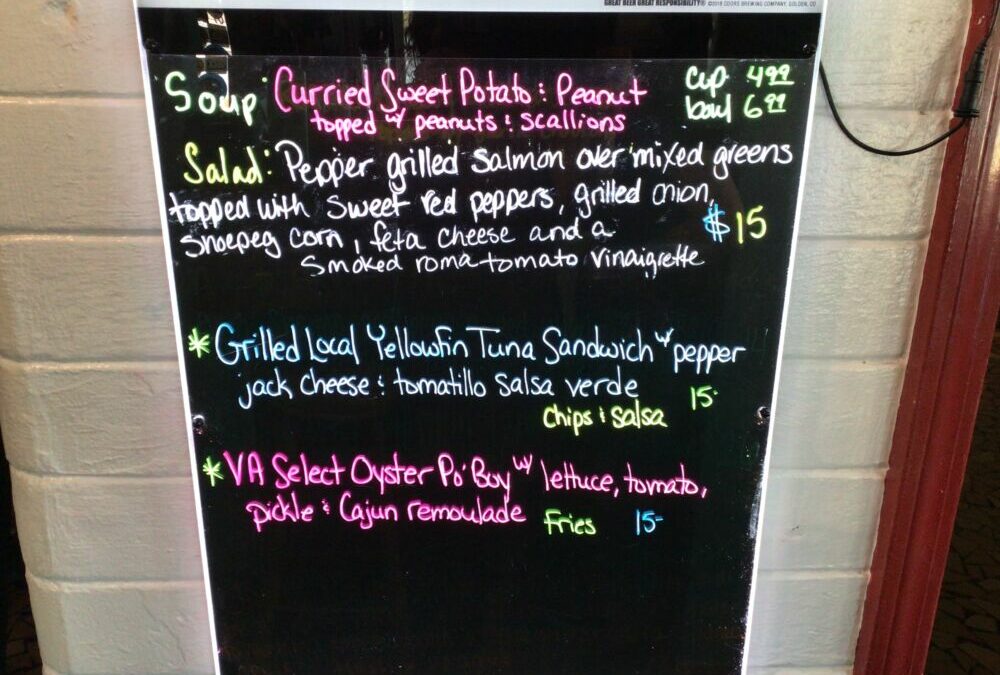 GREAT BEER GREAT RESPONSIBILITY® ©2018 COORS BREWING COMPANY, GOLDEN, CO
Soup: Curried Sweet Potato & Peanut cup 4.99
topped w/ peanuts & scallions bowl 6.99
Salad: Pepper grilled salmon over mixed greens
topped with sweet red peppers, grilled onion,
shoepeg corn, feta cheese and a $15
smoked roma tomato vinaigrette
* Grilled Local Yellowfin Tuna Sandwich w/ pepper
jack cheese & tomatillo salsa verde 15-
Chips & salsa
* VA Select Oyster Po' Boy w/ lettuce, tomato,
pickle & Cajun remoulade Fries 15-